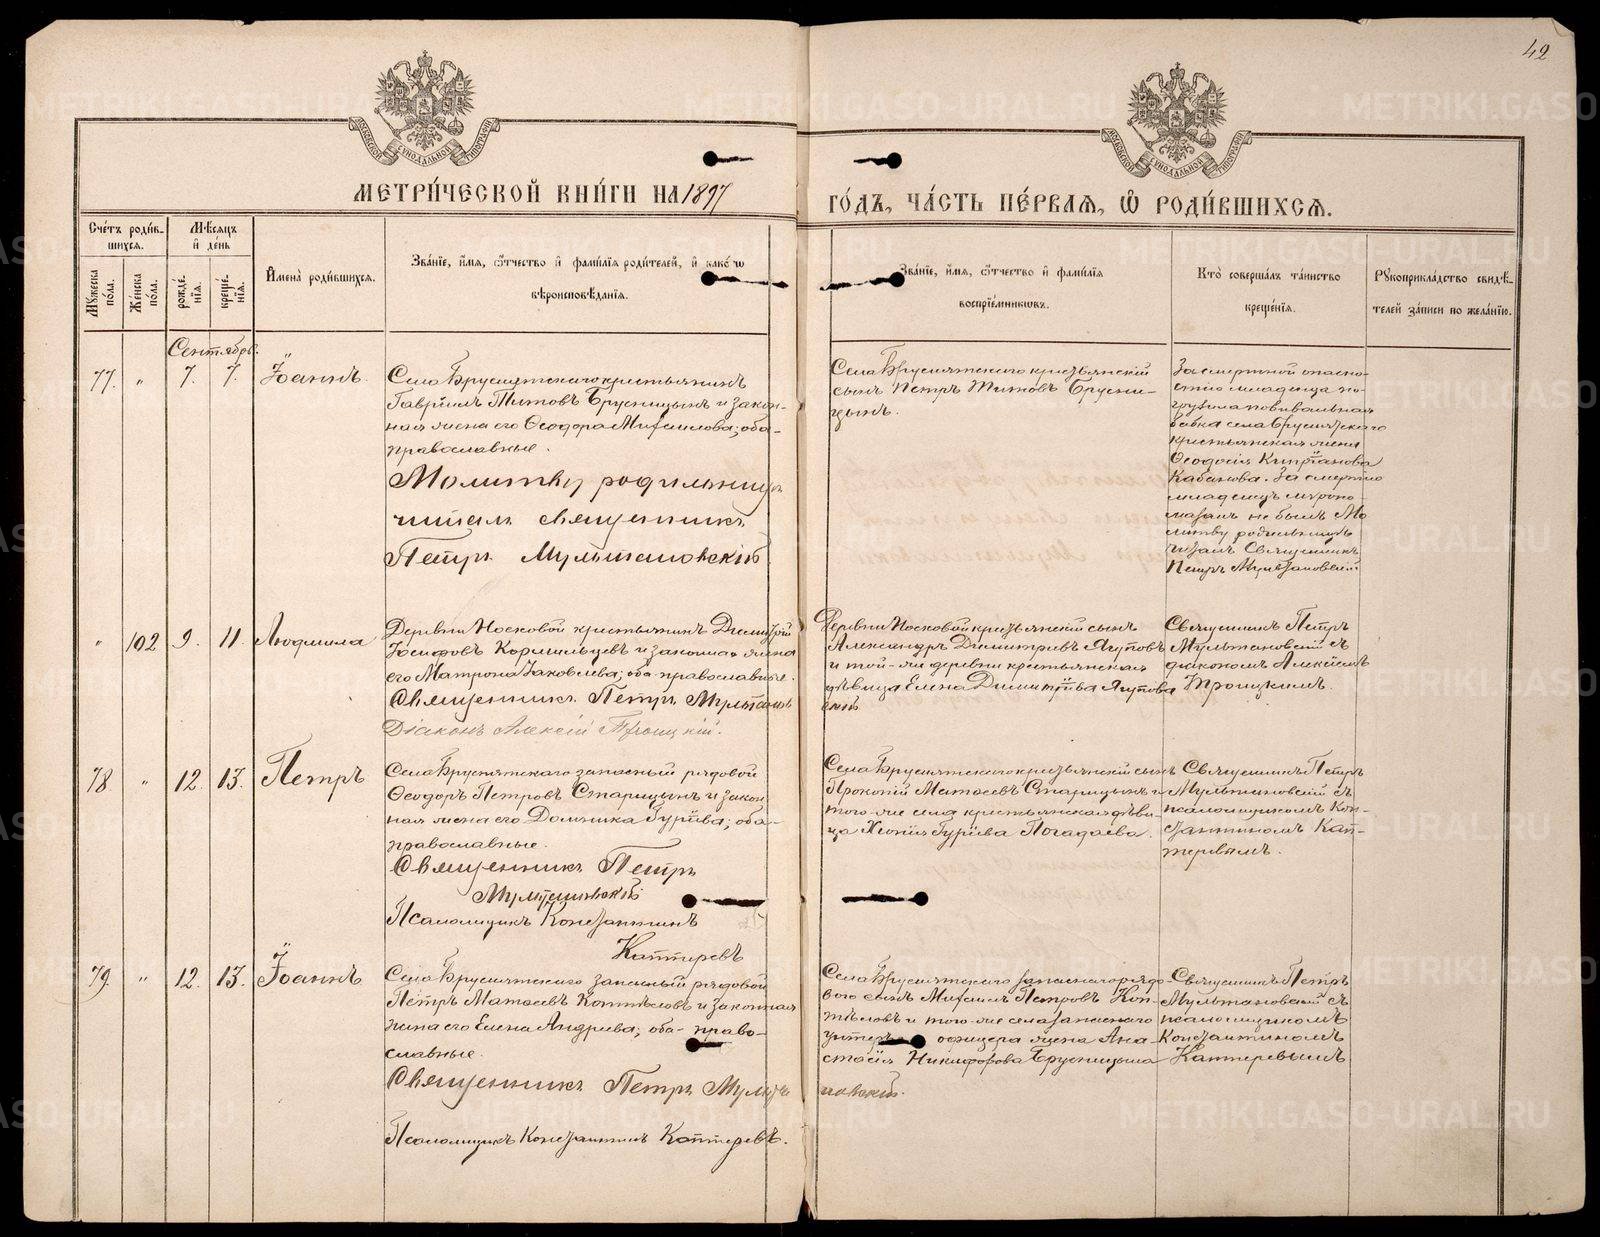 42
МЕТРИ́ЧЕСКОЙ КНИ́ГИ НА 1897
ГО́ДЪ, ЧА́СТЬ ПЕ́РВАЯ, Ѽ РОДИ́ВШИХСЯ.
Сче́тъ роди́в-
шихся.
Мѣ́сяцъ
и де́нь
Му́жеска по́ла.
Же́нска по́ла.
рожде́нїя.
креще́нїя.
Имена̀ роди́вшихся.
Зва́нїе, и́мя, ѻ́тчество и фами́лїя роди́телей, и како́гѡ
вѣроисповѣ́данїя.
Зва́нїе, и́мя, ѻ́тчество и фами́лїя
воспрїе́мникѡвъ.
Кто̀ соверша́лъ та́инство
креще́нїя.
Рꙋкоприкла́дство свидѣ́-
телей за́писи по жела́нїю.
Сентябрь.
77. " 7. 7. Іоаннъ.
Села Бруснятскаго крестьянинъ
Гавріилъ Титовъ Брусницынъ и закон-
ная жена его Ѳеодора Михаилова; оба
православные.
Молитву родильницѣ
читалъ священникъ
Петръ Мультановскій
Села Бруснятскаго крестьянскій
сынъ Петръ Титовъ Брусни-
цынъ.
За смертной опасно-
стію младенца по-
грузила повивальная
бабка села Бруснятскаго
крестьянская жена
Ѳеодосія Кипріанова
Кабанова. За смертію
младенецъ мѵропо-
мазанъ не былъ. Мо-
литву родильницѣ
читалъ Священникъ
Петръ Мультановскій
" 102 9. 11. Людмила
Деревни Носковой крестьянинъ Димитрій
Іосифовъ Кормильцевъ и законная жена
его Матрона Іаковлева; оба православные.
Священникъ Петръ Мультановскій
Діаконъ Алексій Троицкій.
Деревни Носковой крестьянскій сынъ
Александръ Димитріевъ Ягуповъ
и той-же деревни крестьянская
дѣвица Елена Димитріева Ягупова
Священникъ Петръ
Мультановскій съ
діакономъ Алексіемъ
Троицкимъ.
78. " 12. 13. Петръ
Села Бруснятскаго запасный рядовой
Ѳеодоръ Петровъ Старицынъ и закон-
ная жена его Домника Гуріева; оба-
православные.
Священникъ Петръ
Мультановскій
Псаломщикъ Константинъ
Каптеревъ
Села Бруснятскаго крестьянскій сынъ
Прокопій Матѳеевъ Старицынъ и
того-же села крестьянская дѣви-
ца Хіонія Гуріева Погадаева.
Священникъ Петръ
Мультановскій съ
псаломщикомъ Кон-
стантиномъ Кап-
теревымъ.
79. " 12. 13. Іоаннъ
Села Бруснятскаго запасный рядовой
Петръ Матѳеевъ Коптѣловъ и законная
жена его Елена Андреева; оба- право-
славные.
Священникъ Петръ Мульта
новскій.
Псаломщикъ Константинъ Каптеревъ.
Села Бруснятскаго запаснаго рядо-
вого сынъ Михаилъ Петровъ Коп-
тѣловъ и того-же села запаснаго
унтеръ офицера жена Ана-
стасія Никифорова Брусницына
Священникъ Петръ
Мультановскій съ
псаломщикомъ
Константиномъ
Каптеревымъ
METRIKI.GASO-URAL.RU